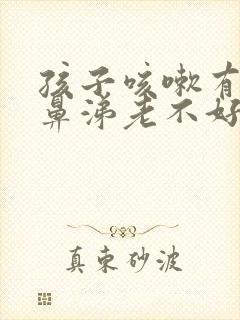 孩子咳嗽有
鼻涕老不好
真束砂波